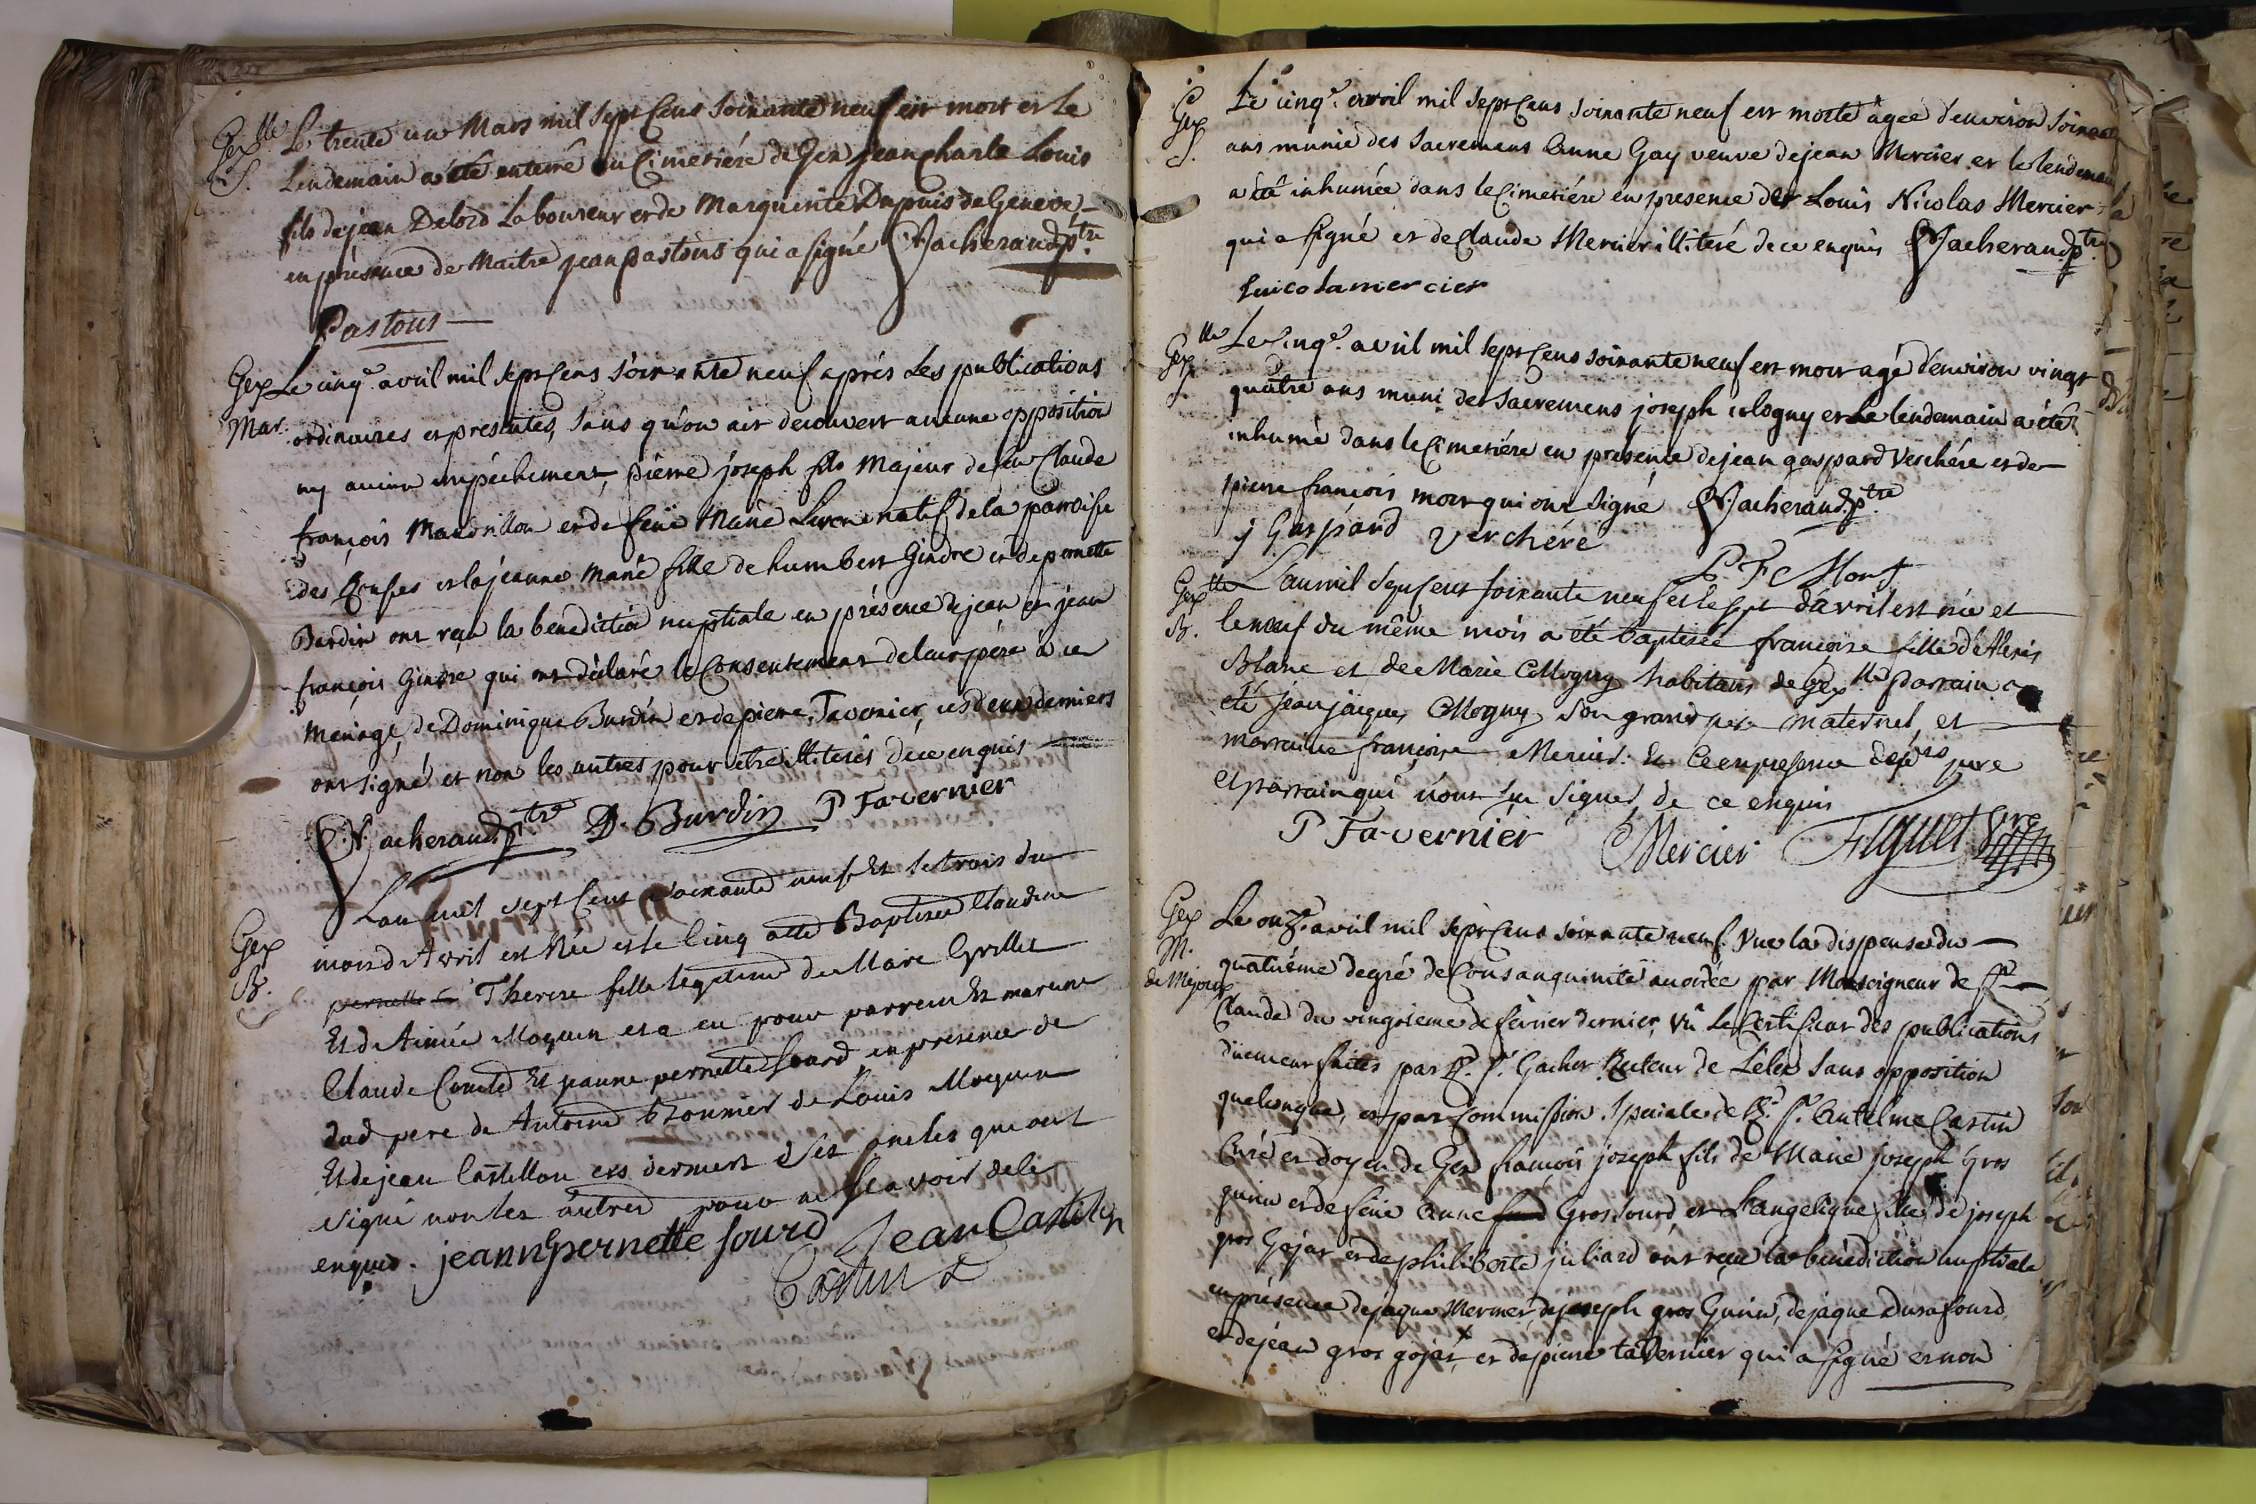 Gex lle Le trente un Mars mil sept Cens soixante neuf est mort et Le
S. Lendemain a été enterré au Cimetiére de Gex jean charle Louis
fils de jean Delord Laboureur et de Marguerite Dupuis de Geneve
en présence de Maitre jean pastours qui a signé Vacherand ptre
Pastours
Gex Le cinqe. avril mil sept Cens soixante neuf aprés Les publications
Mar. ordinaires et prescrites, sans qu'on ait decouvert aucune opposition
ny aucun empéchement, pierre joseph fils Majeur de feu Claude
françois Mandrillon et de feüe Marie native de la parroisse
des et la jeanne Marie fille de humbert Gindre et de pernette
Burdin ont reçu la benediction nuptiale en présence de jean et jean
françois Gindre qui ont déclaré le Consentement de leur pére à ce
mariage, de Dominique Burdin et de pierre Tavernier, ces deux derniers
ont signé et non les autres pour etre illiterés de ce enquis
Vacherand ptre D. Burdin P Tavernier
Gex L'an mil sept Cent soixante neuf Et le trois du
B. mois d Avril est Née et le Cinq Baptisée Claudine
pernette Therese fille legitime de Marc Grillet
Et d Aimée Moquin et a eu pour parrein Et marenne
Claude Comte Et jeanne pernette Sourd, en presence de
dud pere de Antoine de Louis Moquin
Et de jean Castillon ces derniers Ses oncles qui ont
signé non les autres pour ne scavoir de ce
enquis. jeanne pernette sourd Jean Castillon
Castin
Gex Le cinqe. avril mil sept Cens soixante neuf est morte agée d'environ soixante
S. ans munie des sacremens Anne Gay veuve de jean Mercier et le lendemain
a été inhumée dans le Cimetiére en presence de Louis Nicolas Mercier
qui a signé et de Claude Mercier illiteré de ce enquis Vacherand ptre
mercier
Gex lle Le Cinqe. avril mil sept Cens soixante neuf est mort agé d'environ vingt
S. quatre ans muni des sacremens joseph cologny et Le lendemain a été
inhumé dans le Cimetiére en presence de jean gaspard Verchére et de
pierre françois mort qui ont signé Vacherand ptre
j Gaspard Verchére
P. F. Mort
Gex lle L'an mil sept cent soixante neuf et le sept d'avril est née et
B. le neuf du même mois a été baptisée françoise fille d'Alexis
Blanc et de Marie Collogny habitans de Gex lle parrain a
été jean jacques Collogny son grand pere maternel, et
marraine françoise Mercier. Et ce en presence pere
et parrain qui n'ont sçu signer de ce enquis
P Tavernier Mercier Figuet ptre
Gex Le onze avril mil sept Cens soixante neuf. Vue la dispense du
M. quatriéme degré de Consanguinité accordée par Monseigneur de St
de Mijoux Claude du vingtieme de fevrier dernier, Vû Le Certificat des publications
duement faites par Gacher Recteur de Lélex sans opposition
quelconque, et par Commission Speciale de Antelme Castin
Curé et doyen de Gex françois joseph fils de Marie joseph Gros
gurin et de feüe Anne Gros Sourd, et L'angelique fille de joseph
gros Gojat et de philiberte juliard ont reçu la bénédiction nuptiale
en présence de jaque Mermet, de joseph gros Gurin, de jaque Durafourd
et de jean gros gojat, et de pierre tavernier qui a signé et non